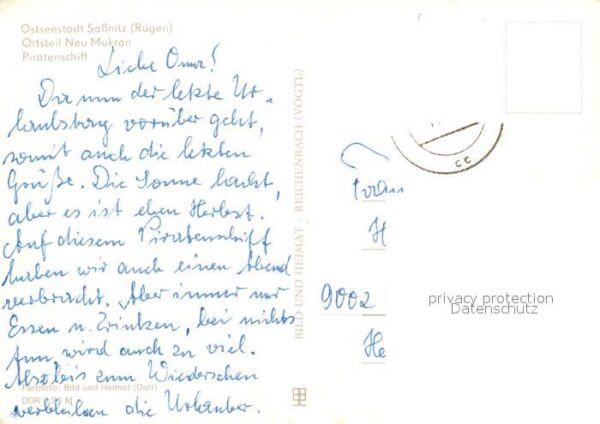 Ostseestadt Saßnitz (Rügen)
Ortsteil Neu Mukran
Piratenschiff
Liebe Oma!
Da nun der letzte Ur-
laubstag vorüber geht,
somit auch die letzten
Grüße. Die Sonne lacht,
aber es ist eben Herbst.
Auf diesem Piratenschiff
haben wir auch einen Abend
verbracht. Aber immer nur
Essen u. Trinken, bei nichts
tun, wird auch zu viel.
Also bis zum Wiedersehen
verbleiben die Urlauber.
Farbfoto: Bild und Heimat (Darr)
DDR 0,20 M
BILD UND HEIMAT · REICHENBACH (VOGTL)
CC
Frau
H
9002
He
privacy protection
Datenschutz